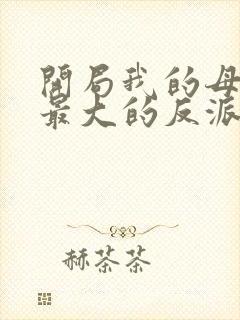 開局我的母
最大的反派
赫茶茶